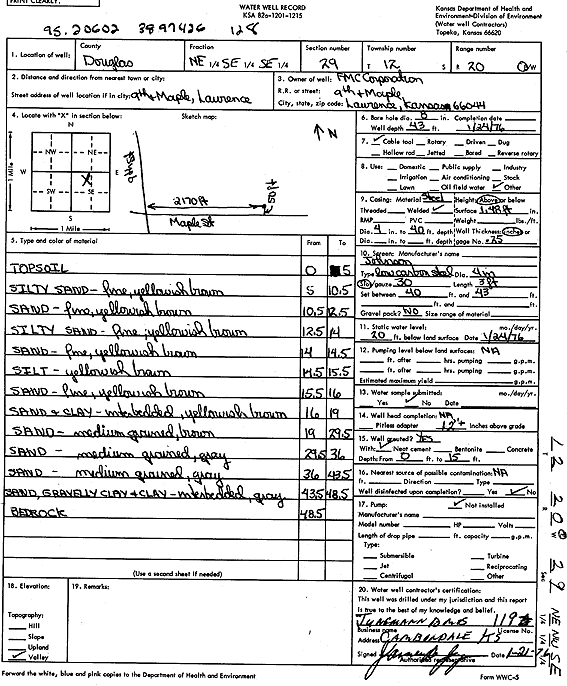 PRINT CLEARLY.
WATER WELL RECORD
KSA 82a-1201-1215
Kansas Department of Health and
Environment-Division of Environment
(Water well Contractors)
Topeka, Kansas 66620
95.20602 3897426 128
1. Location of well:
County
Douglas
Fraction
NE 1/4 SE 1/4 SE 1/4
Section number
29
Township number
T 12 S
Range number
R 20 E W
2. Distance and direction from nearest town or city:
Street address of well location if in city: 9th + Maple, Lawrence
3. Owner of well: FMC Corporation
R.R. or street: 9th + Maple
City, state, zip code: Lawrence, Kansas 66044
4. Locate with "X" in section below:
Sketch map:
N
NW NE
W E
X
SW SE
S
1 Mile
1 Mile
N
2170 ft
50 ft
Maple St
6. Bore hole dia. 8 in. Completion date
Well depth 43 ft. 1/24/76
7. ✓ Cable tool Rotary Driven Dug
Hollow rod Jetted Bored Reverse rotary
8. Use: Domestic Public supply Industry
Irrigation Air conditioning Stock
Lawn Oil field water ✓ Other
9. Casing: Material Steel Height: Above or below
Threaded Welded ✓ Surface 1.48 ft in.
RMP PVC Weight lbs./ft.
Dia. 4 in. to 40 ft. depth Wall Thickness: inches or
Dia. in. to ft. depth gage No. .75
5. Type and color of material From To
TOPSOIL 0 5
SILTY SAND - fine, yellowish brown 5 10.5
SAND - fine, yellowish brown 10.5 12.5
SILTY SAND - fine, yellowish brown 12.5 14
SAND - fine, yellowish brown 14 14.5
SILT - yellowish brown 14.5 15.5
SAND - fine, yellowish brown 15.5 16
SAND & CLAY - interbedded, yellowish brown 16 19
SAND - medium grained, brown 19 29.5
SAND - medium grained, gray 29.5 36
SAND - medium grained, gray 36 43.5
SAND, GRAVELLY CLAY & CLAY - interbedded, gray 43.5 48.5
BEDROCK 48.5
(Use a second sheet if needed)
10. Screen: Manufacturer's name
Johnson
Type low carbon steel Dia. 4 in
Slot/gauze .30 Length 3 ft
Set between 40 ft. and 43 ft.
ft. and ft.
Gravel pack? NO Size range of material
11. Static water level: mo./day/yr.
20 ft. below land surface Date 1/24/76
12. Pumping level below land surface: NA
ft. after hrs. pumping g.p.m.
ft. after hrs. pumping g.p.m.
Estimated maximum yield g.p.m.
13. Water sample submitted: mo./day/yr.
Yes ✓ No Date
14. Well head completion: NA
Pitless adapter 12"+ Inches above grade
15. Well grouted? YES
With: ✓ Neat cement Bentonite Concrete
Depth: From 0 ft. to 15 ft.
16. Nearest source of possible contamination: NA
ft. Direction Type
Well disinfected upon completion? Yes ✓ No
17. Pump: ✓ Not installed
Manufacturer's name
Model number HP Volts
Length of drop pipe ft. capacity g.p.m.
Type:
Submersible Turbine
Jet Reciprocating
Centrifugal Other
18. Elevation:
19. Remarks:
Topography:
Hill
Slope
Upland
✓ Valley
20. Water well contractor's certification:
This well was drilled under my jurisdiction and this report
is true to the best of my knowledge and belief.
Business name License No.
Address
Signed Date 1-21-76
Authorized representative
Forward the white, blue and pink copies to the Department of Health and Environment
Form WWC-5
T 12 R 20 W Sec 29 NE 1/4 NE 1/4 SE 1/4